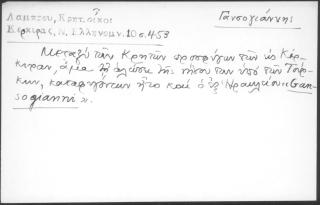 Λάμπρου, Κρητ. οἶκοι
Κερκύρας, Ν. Ἑλληνομν. 10 σ. 453
Γανσογιάννης
Μεταξὺ τῶν Κρητῶν προσφύγων τῶν εἰς Κέρ-
κυραν, ἅμα τῇ ἁλώσει τῆς νήσου των ὑπὸ τῶν Τούρ-
κων, καταφυγόντων ἦτο καὶ ὁ ἐξ Ἡρακλείου «Gan-
sogianni».